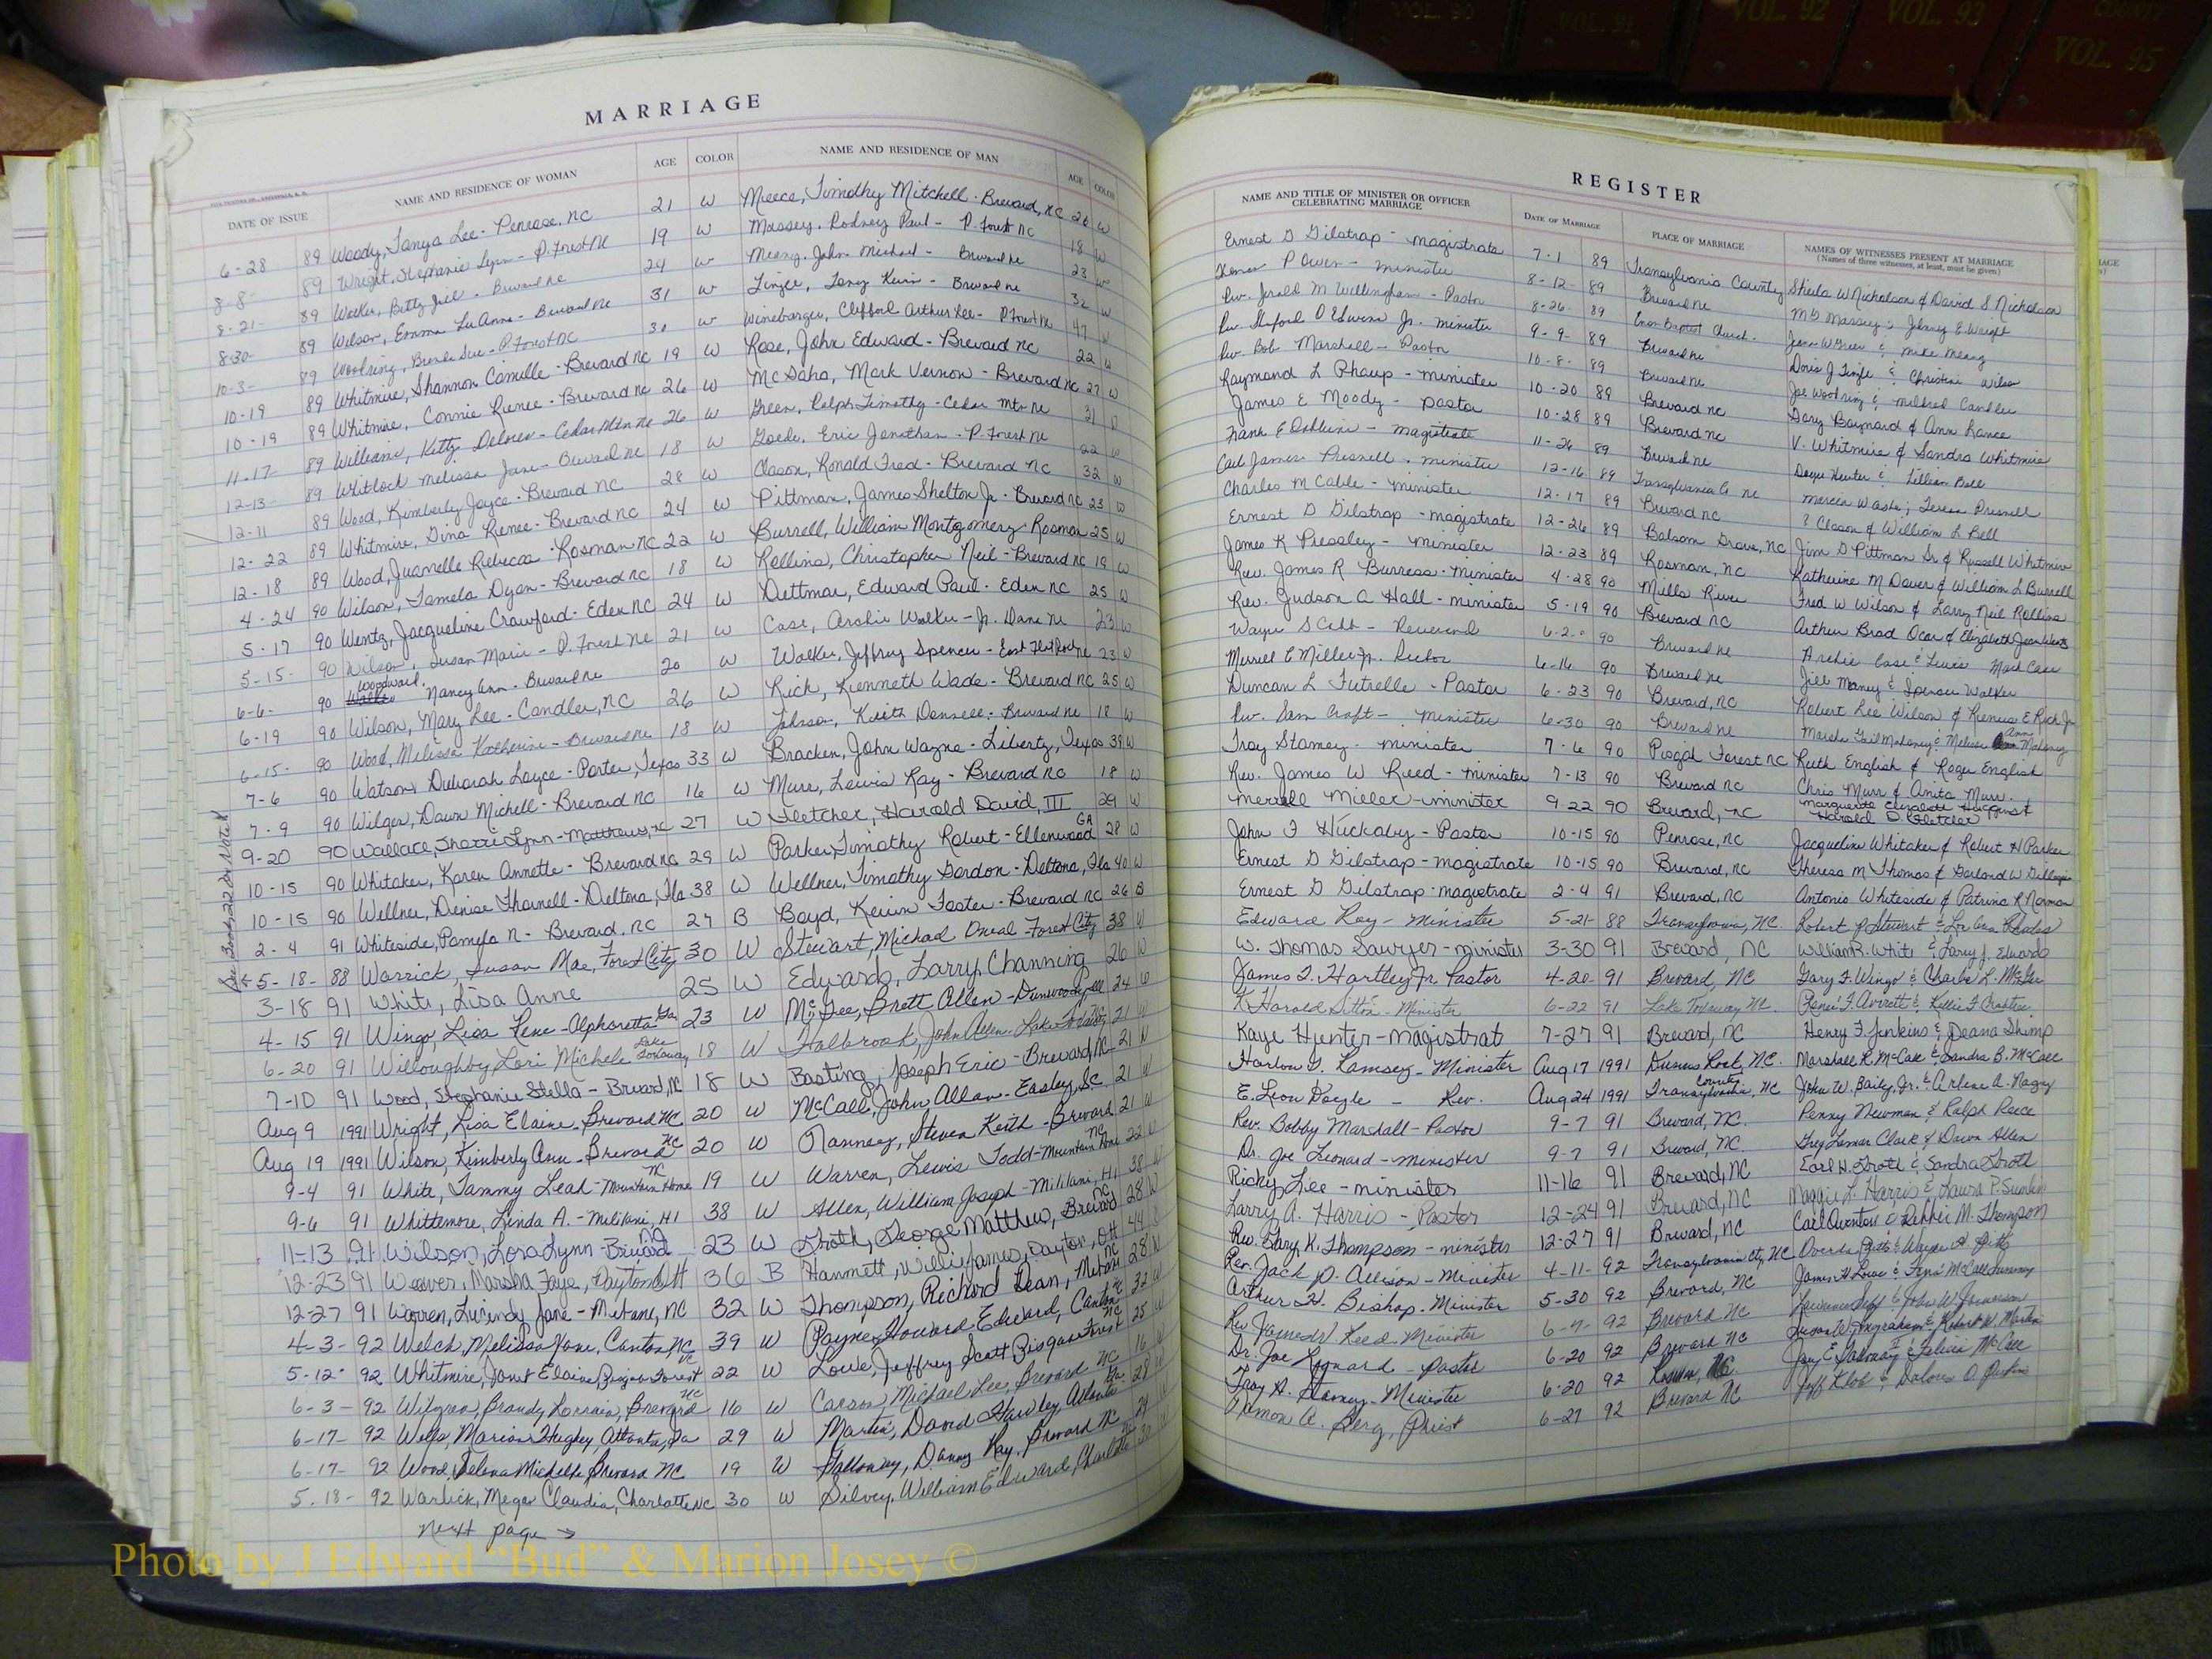 VOL. 90 VOL. 91 VOL. 92 VOL. 93 COUNTY VOL. 95
MARRIAGE
DATE OF ISSUE NAME AND RESIDENCE OF WOMAN AGE COLOR NAME AND RESIDENCE OF MAN AGE COLOR
6-28 89 Woody, Tanya Lee - Penrose, NC 21 W Meece, Timothy Mitchell - Brevard, NC 26 W
8-8 89 Wright, Stephanie Lynn - P. Forest NC 19 W Massey, Rodney Paul - P. Forest NC 18 W
8-21- 89 Walker, Betty Jill - Brevard NC 24 W John Michael - Brevard NC 23 W
8-30- 89 Wilson, Emma LuAnn - Brevard NC 31 W Tony Kevin - Brevard NC 32 W
10-3- 89 Woodring, Brenda Sue - P. Forest NC 30 W Winebarger, Clifford Arthur Lee - P. Forest NC 47 W
10-19 89 Whitmire, Shannon Camille - Brevard NC 19 W Rose, John Edward - Brevard NC 22 W
10-19 89 Whitmire, Connie Renee - Brevard NC 26 W Mark Vernon - Brevard NC 27 W
11-17 89 Williams, Kitty - Cedar Mtn NC 26 W Green, Ralph Timothy - Cedar Mtn NC 31 W
12-13- 89 Whitlock Melissa Jane - Brevard NC 18 W Goode, Eric Jonathan - P. Forest NC 22 W
12-11 89 Wood, Kimberly Joyce - Brevard NC 28 W Clason, Ronald Fred - Brevard NC 32 W
12-22 89 Whitmire, Dina Renee - Brevard NC 24 W Pittman, James Shelton Jr - Brevard NC 23 W
12-18 89 Wood, Juanelle Rebecca - Rosman NC 22 W Burrell, William Montgomery - Rosman 25 W
4-24 90 Wilson, Tamela Dyan - Brevard NC 18 W Rollins, Christopher Neil - Brevard NC 19 W
5-17 90 Wentz, Jacqueline Crawford - Eden NC 24 W Dettmar, Edward Paul - Eden NC 25 W
5-15- 90 Wilson, Susan Marie - P. Forest NC 21 W Case, Archie Walker - Jr. Dana NC 23 W
6-6- 90 Woodward, Nancy Ann - Brevard NC 20 W Walker, Jeffrey Spencer - East Flat Rock NC 23 W
6-19 90 Wilson, Mary Lee - Candler, NC 26 W Rick, Kenneth Wade - Brevard NC 25 W
6-15- 90 Wood, Melissa Katherine - Brevard NC 18 W Johnson, Keith - Brevard NC 18 W
7-6 90 Watson, Deborah Layce - Porter, Texas 33 W Bracken, John Wayne - Liberty, Texas 39 W
7-9 90 Wilger, Dawn Michell - Brevard NC 16 W Murr, Lewis Ray - Brevard NC 18 W
9-20 90 Wallace, Sherri Lynn - Matthews, NC 27 W Fletcher, Harold David, III 29 W
10-15 90 Whitaker, Karen Annette - Brevard NC 29 W Parker, Timothy Robert - Ellenwood GA 28 W
10-15 90 Wellner, Denise Tharnell - Deltona, Fla 38 W Wellner, Timothy Gordon - Deltona, Fla 40 W
2-4 91 Whiteside, Pamela R - Brevard, NC 27 B Boyd, Kevin Foster - Brevard NC 26 B
5-18- 88 Warrick, Susan Mae, Forest City 30 W Stewart, Michael Oneal - Forest City 38 W
3-18 91 White, Lisa Anne 25 W Edwards, Larry Channing 26 W
4-15 91 Wingo, Lisa Rene - Alpharetta Ga 23 W McGee, Brett Allen - Dunwoody 24 W
6-20 91 Willoughby Lori Michele Lake Toxaway 18 W Holbrook, John Allen - Lake Toxaway 21 W
7-10 91 Wood, Stephanie Stella - Brevard, NC 18 W Basting, Joseph Eric - Brevard, NC 21 W
Aug 9 1991 Wright, Lisa Elaine, Brevard NC 20 W McCall, John Allan - Easley, SC 21 W
Aug 19 1991 Wilson, Kimberly Ann - Brevard NC 20 W Steven Keith - Brevard 21 W
9-4 91 White, Tammy Leah - Mountain Home NC 19 W Warren, Lewis Todd - Mountain Home NC 22 W
9-6 91 Whittemore, Linda A. - Mililani, HI 38 W Allen, William Joseph - Mililani, HI 38 W
11-13 91 Wilson, Lora Lynn - Brevard NC 23 W Troth, George Matthew, Brevard NC 28 W
12-23 91 Weaver, Marsha Faye, Dayton OH 36 B Hammett, Willie James, Dayton, OH 44 B
12-27 91 Warren, Lucindy Jane - Mebane, NC 32 W Thompson, Richard Dean, Mebane NC 28 W
4-3- 92 Welch, Melissa Jane, Canton NC 39 W Payne, Howard Edward, Canton NC 32 W
5-12- 92 Whitmire, Janet Elaine, Pisgah Forest NC 22 W Lowe, Jeffrey Scott Pisgah Forest NC 25 W
6-3- 92 Brandy Lorrain, Brevard NC 16 W Carson, Michael Lee, Brevard NC 16 W
6-17- 92 Wells, Marion Hughey, Atlanta, Ga 29 W Martin, David Hawley, Atlanta Ga. 28 W
6-17- 92 Wood, Selena Michelle, Brevard NC 19 W Galloway, Danny Ray, Brevard NC 29
5-18- 92 Warlick, Claudia, Charlotte NC 30 W Silvey, William Edward, Charlotte 30 W
next page →
REGISTER
NAME AND TITLE OF MINISTER OR OFFICER CELEBRATING MARRIAGE DATE OF MARRIAGE PLACE OF MARRIAGE NAMES OF WITNESSES PRESENT AT MARRIAGE
(Names of three witnesses, at least, must be given)
Ernest D Gilstrap - magistrate 7-1 89 Transylvania County Sheila W Nicholson & David S Nicholson
Thomas P Owen - minister 8-12- 89 Brevard NC Massey & Johnny E. Wright
Rev. Jerald M Willingham - Pastor 8-26- 89 Enon Baptist Church.
Rev. D Edwin Jr. minister 9-9- 89 Brevard NC Doris J & Christine Wilson
Rev. Bob Marshall - Pastor 10-8- 89 Brevard NC Joe Woodring & Mildred Candler
Raymond L Phaup - minister 10-20 89 Brevard NC Gary Baynard & Ann Lance
James E Moody - pastor 10-28 89 Brevard NC V. Whitmire & Sandra Whitmire
Frank E - magistrate 11-26 89 Brevard NC & Lillian Bell
Carl James Presnell - minister 12-16 89 Transylvania Co NC Marcia & Teresa Presnell
Charles M Cable - minister 12-17 89 Brevard NC ? Clason & William L Bell
Ernest D Gilstrap - magistrate 12-26 89 Balsam Grove, NC Jim D Pittman Sr & Russell Whitmire
James K Pressley - minister 12-23 89 Rosman, NC Katherine M Daver & William L Burrell
Rev. James R Burress - minister 4-28 90 Mills River Fred W Wilson & Larry Neil Rollins
Rev. Judson A Hall - minister 5-19 90 Brevard NC Arthur Brad Ocar & Elizabeth Jean Wentz
Wayne S - Reverend 6-2- 90 Brevard NC Archie Case & Lewis Mark Case
Merrel E Miller Jr. Rector 6-16 90 Brevard NC Jill Maney & Spencer Walker
Duncan L Futrelle - Pastor 6-23 90 Brevard, NC Robert Lee Wilson & Kenneth E Rich Jr
Rev. Sam Craft - minister 6-30 90 Brevard NC Marsha Gail Mahaney & Melissa Ann Mahaney
Troy Stamey - minister 7-6 90 Pisgah Forest NC Ruth English & Roger English
Rev. James W Reed - minister 7-13 90 Brevard NC Chris Murr & Anita Murr
Merrell Miller - minister 9-22 90 Brevard, NC Marguerite Elizabeth
Harold D. Fletcher
John F Huckaby - Pastor 10-15 90 Penrose, NC Jacqueline Whitaker & Robert H Parker
Ernest D Gilstrap - magistrate 10-15 90 Brevard, NC Theresa M Thomas & Garland W Gillespie
Ernest D Gilstrap - magistrate 2-4 91 Brevard, NC Antonio Whiteside & Patrina R Norman
Edward Roy - Minister 5-21- 88 Transylvania, NC. Robert P Stewart & Lee Ann Rhodes
W. Thomas Sawyer - minister 3-30 91 Brevard, NC William R. White & Larry J. Edwards
James T. Hartley Jr Pastor 4-20- 91 Brevard, NC Gary F. Wingo & Charles L. McGee
K. Harold Sitton - Minister 6-22 91 Lake Toxaway NC. Rene' F. Averett & Kellie F Crabtree
Kaye Hunter - magistrat 7-27 91 Brevard, NC Henry F. Jenkins & Deana Shimp
Harlon T. Ramsey - Minister Aug 17 1991 Dunns Rock, NC. Marshall R. McCall & Sandra B. McCall
E. Leon - Rev. Aug 24 1991 Transylvania County, NC John W. Baily, Jr. & Arlene A. Nagy
Rev. Bobby Marshall - Pastor 9-7 91 Brevard, NC. Penny Newman & Ralph Reece
Dr. Joe Leonard - minister 9-7 91 Brevard, NC. Greg Lamar Clark & Dawn Allen
Ricky Lee - minister 11-16 91 Brevard, NC Earl H. Troth & Sandra Troth
Larry A. Harris - Pastor 12-24 91 Brevard, NC Maggie L. Harris & Laura P.
Rev. Gary K. Thompson - minister 12-27 91 Brevard, NC Carl & Debbie M. Thompson
Rev. Jack D. Allison - Minister 4-11- 92 Transylvania Cty, NC
Arthur H. Bishop. Minister 5-30 92 Brevard, NC James H Lowe & McCall
Rev James W. Reed Minister 6-7- 92 Brevard NC & John W.
Dr. Joe Leonard - pastor 6-20 92 Brevard NC & Robert W. Martin
Troy A. Stamey - Minister 6-20 92 NC. Galloway & McCall
A. Berg, Priest 6-27 92 Brevard NC & Dolores
Photo by J Edward "Bud" & Marion Josey ©